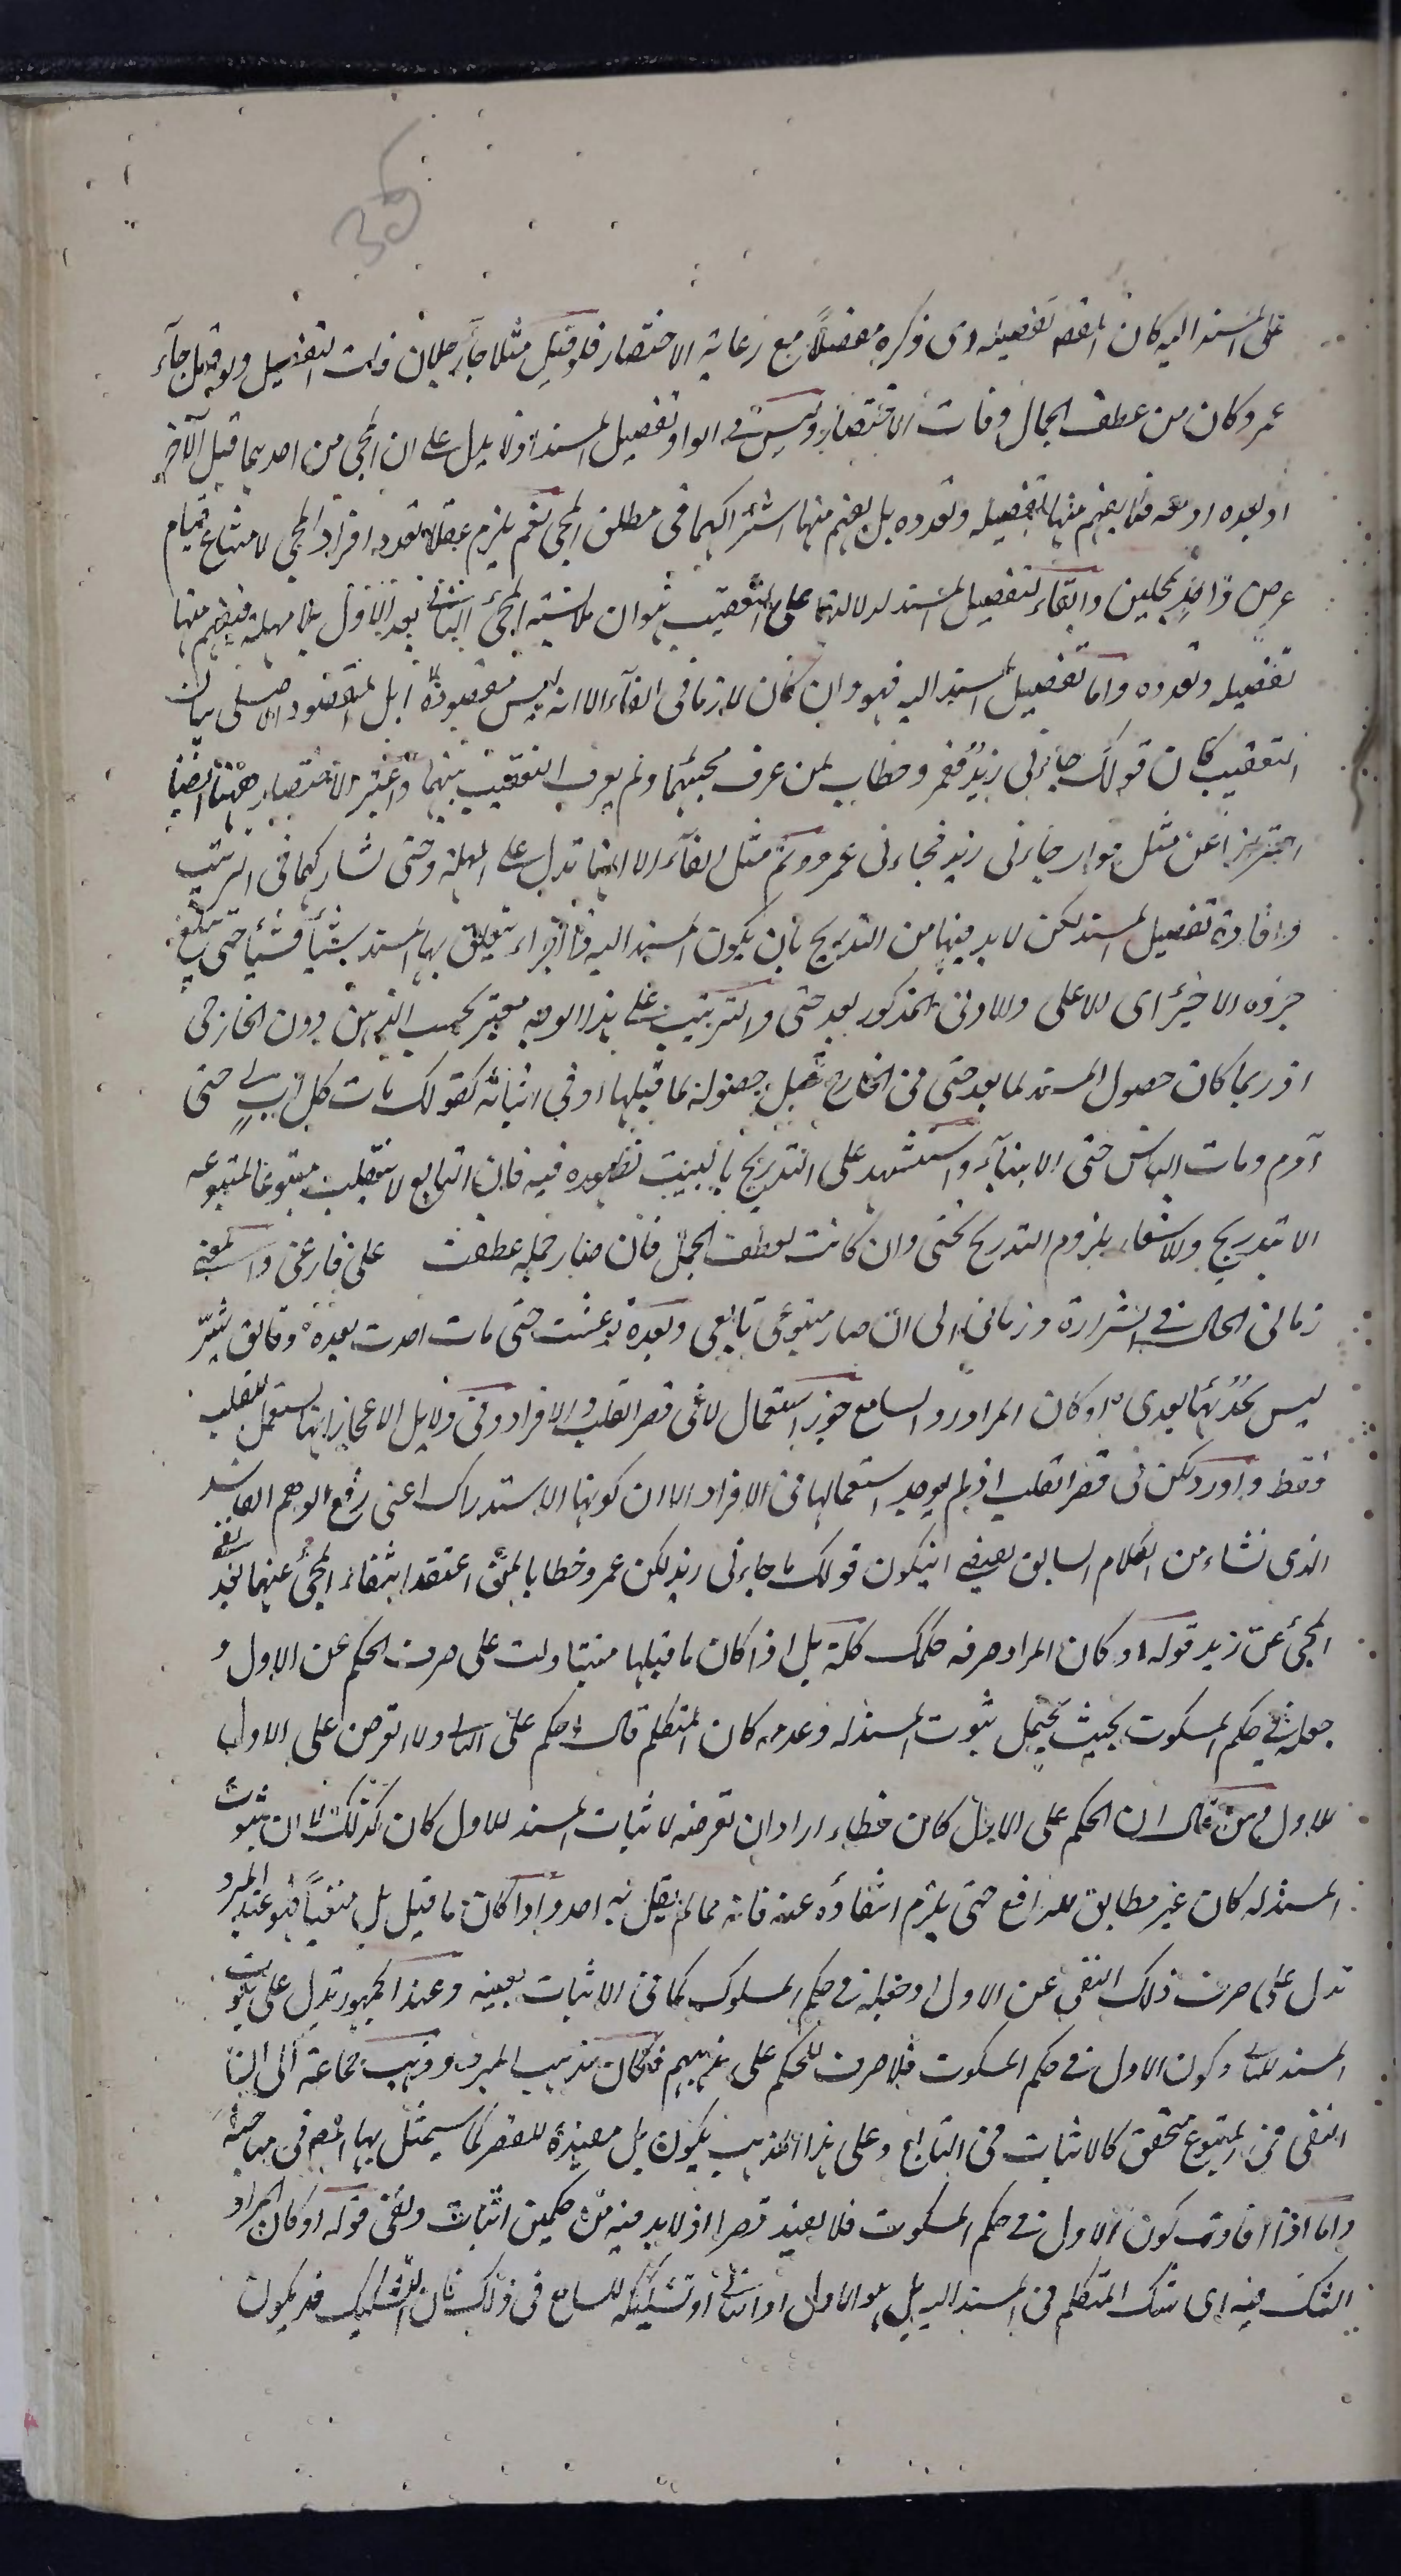 35
على المسند اليه كان المقصـ تفصيله اى ذكره مفصلا مع رعاية الاختصار فلو قيل مثلا جاء رجلان فات التفصيل ولو قيل جاء
عمرو كان من عطف الجمل وفات الاختصار وليس فى الواو تفصيل المسند اذ لا يدل على ان المجئ من احدهما قبل الآخر
او بعده او معه فلا يفهم منها تفصيله وتعدده بل يفهم منها اشتراكهما فى مطلق المجئ نعم يلزم عقلا تعدد افراد المجئ لامتناع قيام
عرض واحد بمحلين والفاء لتفصيل المسند لدلالتها على التعقيب هو ان ملابسته المجئ الثانى بعد الاول بلا مهلة فيفهم منها
تفصيله وتعدده واما تفصيل المسند اليه فهو وان كان لازما فى الفاء الا انه ليس مقصودا بل المقصود الاصلى بيان
التعقيب كان قولك جاءنى زيد فعمرو خطاب لمن عرف مجيئهما ولم يعرف التعقيب بينهما واعتبر الاختصار ههنا ايضا
احترازا عن مثل جاءنى زيد فجاءنى عمرو وثم مثل الفاء الا انها تدل على المهلة وحتى تشاركهما فى الترتيب
وافادة تفصيل المسند لكن لابد فيها من التدريج بان يكون المسند اليه ذا اجزاء يتعلق بها المسند شيئا فشيئا حتى يبلغ
جزءه الاخير اى الاعلى والادنى المذكور بعد حتى والترتيب على هذا الوجه معتبر بحسب الذهن دون الخارجى
اذ ربما كان حصول المسند لما بعد حتى فى الخارج قبل حصوله لما قبلها او فى اثنائه كقولك مات كل اب لى حتى
آدم ومات الناس حتى الانبياء واستشهد على التدريج بالبيت لظهوره فيه فان التابع لا ينقلب متبوعا لمتبوعه
الا بتدريج والاشعار بلزوم التدريج لحتى وان كانت لعطف الجمل فان صار جملة عطفت على فارغى والمعنى
زمانى الحال فى الشرارة وزمانى الى ان صار متبوعى تابعى وبعده فلو عشت حتى مات احدث بعده دقائق شر
ليس يحدثها بعدى او كان المراد رد السامع جوز استعمال لا فى قصر القلب والافراد وفى دلايل الاعجاز انها تستعمل للقلب
فقط واورد لكن فى قصر القلب اذ لم يوجد استعمالها فى الافراد الا ان كونها للاستدراك اعنى رفع الوهم الفاسد
الذى نشاء من الكلام السابق يقتضى ان يكون قولك ما جاءنى زيد لكن عمرو خطابا لمن اعتقد انتفاء المجئ عنهما بعد نفى
المجئ عن زيد قوله او كان المراد صرفه حكمك كلمة بل اذا كان ما قبلها مثبتا دلت على صرف الحكم عن الاول و
جعله فى حكم المسكوت بحيث يحتمل ثبوت المسند له وعدمه كان المتكلم قال احكم على الثانى ولا تعرض على الاول
للاول ومن قال ان الحكم على الاول كان خطاء اراد ان تعرضه لاثبات المسند للاول كان كذلك لا ان ثبوت
المسند له كان غير مطابق للواقع حتى يلزم انتفاؤه عنه فانه مما لم يقل به احد واذا كان ما قبل بل منفيا فهو عند المبرد
تدل على صرف ذلك النفى عن الاول وجعله فى حكم المسكوت كما فى الاثبات بعينه وعند الجمهور تدل على ثبوت
المسند للثانى وكون الاول فى حكم المسكوت فلا صرف للحكم على مذهبهم فكان مذهب المبرد وذهب جماعة الى ان
النفى فى المتبوع متحقق كالاثبات فى التابع وعلى هذا المذهب يكون بل مفيدة للقصر كما سيمثل بها المصـ فى مباحثه
واما اذا افادت كون الاول فى حكم المسكوت فلا يفيد قصرا اذ لابد فيه من حكمين اثبات ونفى قوله او كان المراد
الشك فيه اى شك المتكلم فى المسند اليه بل هو الاول او الثانى او تشكيكه للسامع فى ذلك فان التشكيك قد يكون